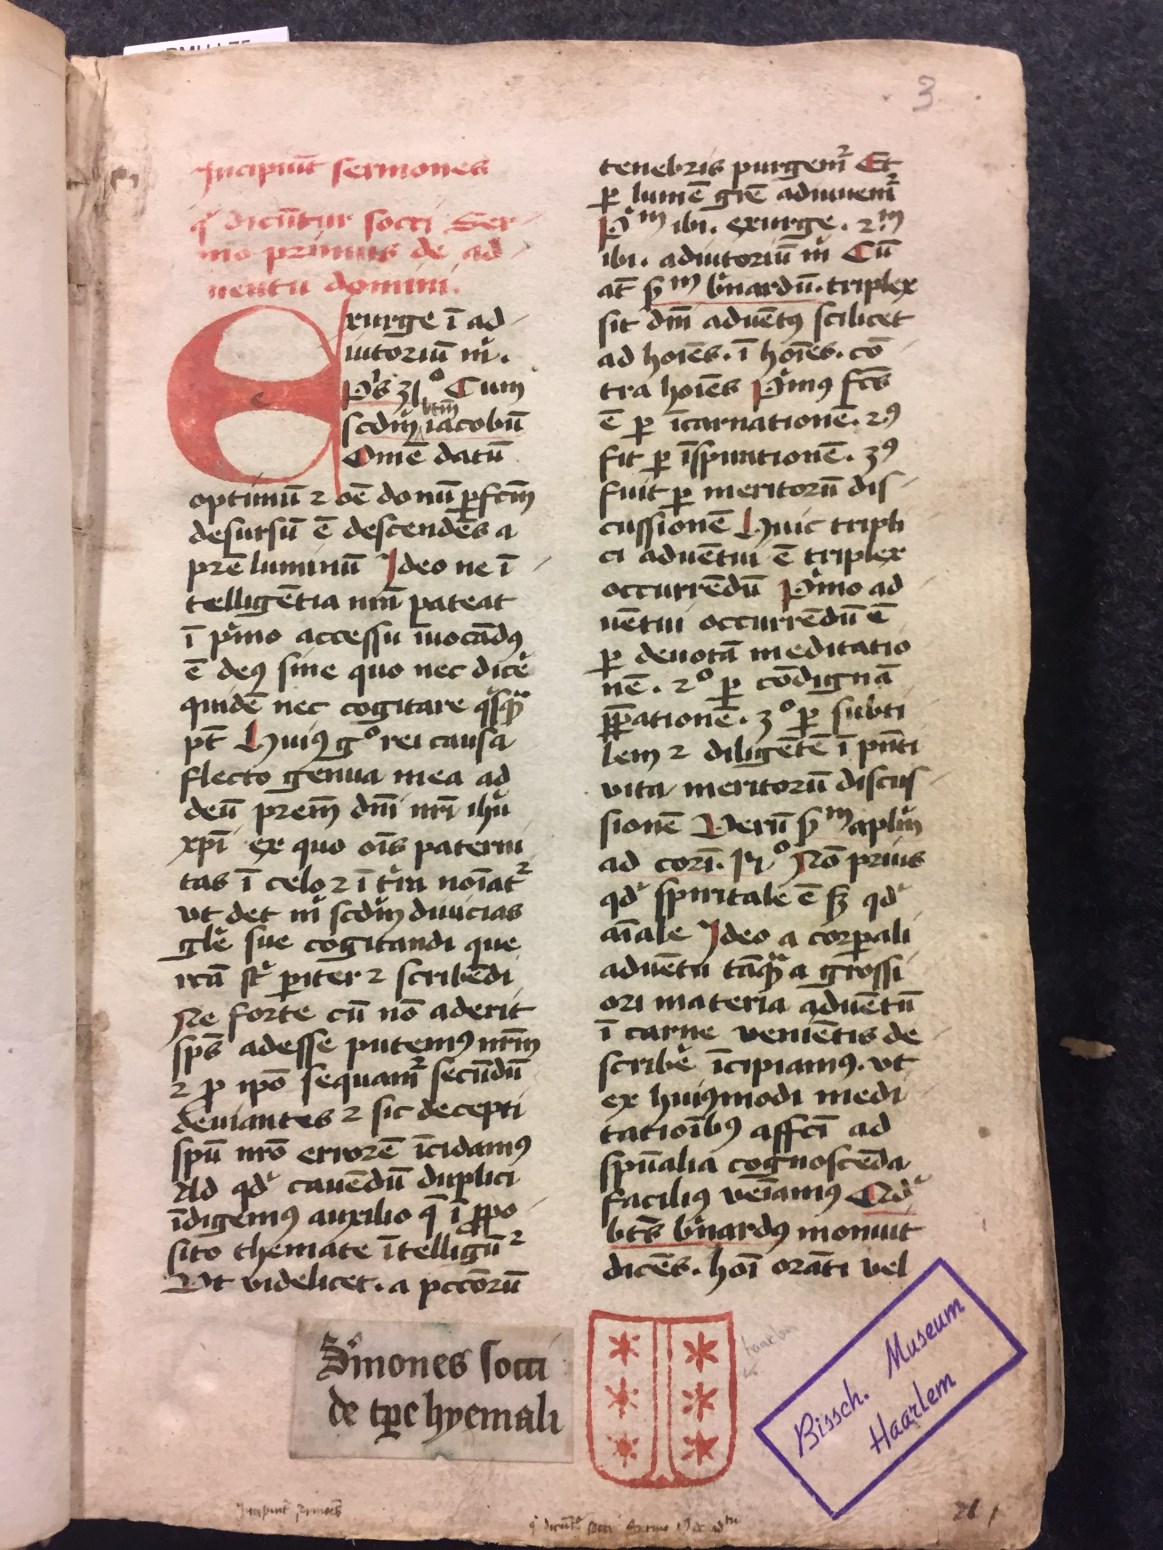 3
Incipiūt sermones
q̄ dicūtur socci Ser-
mo primus de ad-
uentu domini.
Exurge ī ad-
iutoriū m̄.
Cum
scdm̄ btm̄ iacobū
Omē datū
optimū ⁊ oē donū ꝑfctm̄
desursū ē descendēs a
prē luminū Ideo ne ī-
telligētia nr̄i pateat
ī pͥmo accessu īuocādꝯ
ē deꝯ sine quo nec dicē
quidē nec cogitare
pt̄ Huiꝯ gͦ rei causa
flecto genua mea ad
deū prem̄ dn̄i nr̄i ihū
xpī ex quo oīs paterni
tas ī celo ⁊ ī tͥra noīatᷣ
vt det m̄ scdm̄ diuicias
gl̄e sue cogitandi que
rcā st̄ ꝑiter ⁊ scribēdi
Ne forte cū nō aderit
sps̄ adesse putemꝯ nrm̄
⁊ ꝓ ip̄o sequamᷣ secūdū
deuiantes ⁊ sic decepti
spū nr̄o errorē īcidamꝯ
Ad qd̄ cauēdū duplici
īdigemꝯ auxilio q̄ ī ꝓpo
sito themate ītelligūᷣ
Vt videlicet. a pccōrū
tenebris purgemᷣ Et
ꝑ lumē grē adiuuemᷣ
Pͫ ibi. exurge. 2ͫ
ibi. adiutoriū m̄ Cū
at̄ sͫ b̄nardū. triplex
sit dn̄i aduētꝯ scilicet
ad hoīes. ī hoīes. cō
tra hoīes Pͥmꝯ fcs̄
ē ꝑ īcarnationē. 2ꝯ
fit ꝑ īspirationē. 3ꝯ
fuit ꝑ meritorū dis-
cussionē Huic tripli
ci aduētui ē triplex
occurrēdū Pͥmo ad
uētui occurrēdū ē
ꝑ deuotā meditatio
nē. 2ͦ ꝑ condignā
p̄ꝑationē. 3ͦ ꝑ subti
lem ⁊ diligētē ī pn̄ti
vita meritorū discus-
sionē Verū sͫ aplm̄
ad corī. Nō prius
qd̄ spiritale ē sꝫ qd̄
aīale Ideo a corꝑali
aduētu tāqͣ a grossi
ori materia aduētū
ī carne veniētis de
scribē īcipiamꝯ. vt
ex huiꝯmodi medi
tatioībꝯ affcī ad
spūalia cognoscēda
faciliꝯ veīamꝯ Qd̄
bts̄ b̄nardꝯ monuit
dicēs. hoī orāti vel
Sͬmones socci
de tꝑe hyemali
haarlem
Bissch. Museum
Haarlem
Incipiūt sermoēs
q̄ dicūtᷣ socci Sermo
26